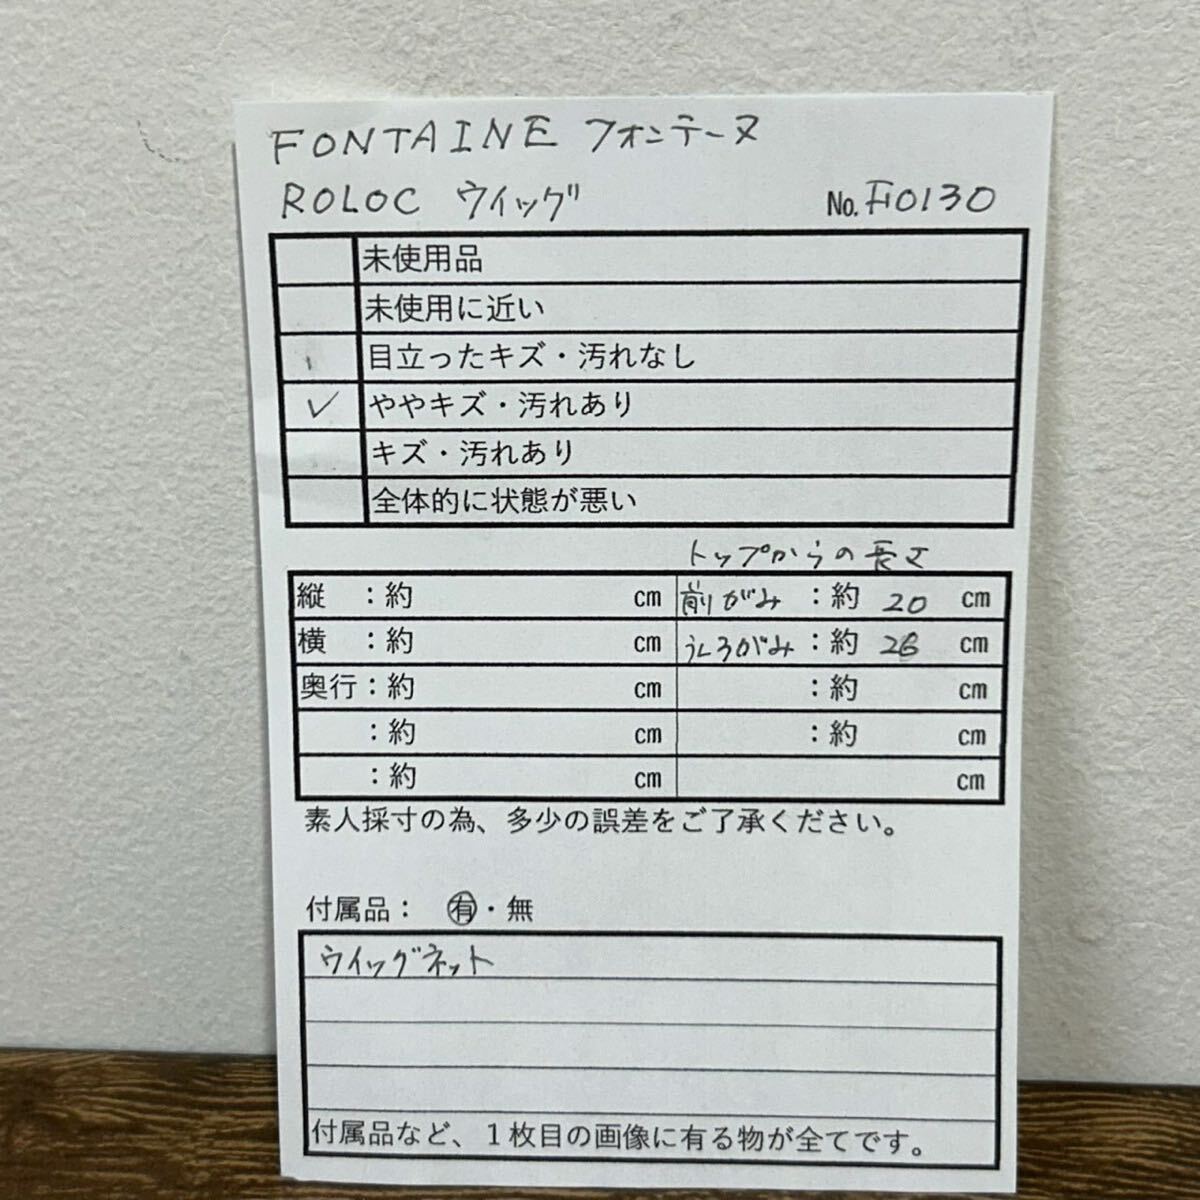 FONTAINE フォンテーヌ
ROLOC ウイッグ No. F10130
未使用品
未使用に近い
目立ったキズ・汚れなし
✓ ややキズ・汚れあり
キズ・汚れあり
全体的に状態が悪い
トップからの長さ
縦 ：約 cm 前がみ ：約 20 cm
横 ：約 cm うしろがみ：約 26 cm
奥行：約 cm ：約 cm
：約 cm ：約 cm
：約 cm cm
素人採寸の為、多少の誤差をご了承ください。
付属品： 有・無
ウイッグネット
付属品など、１枚目の画像に有る物が全てです。